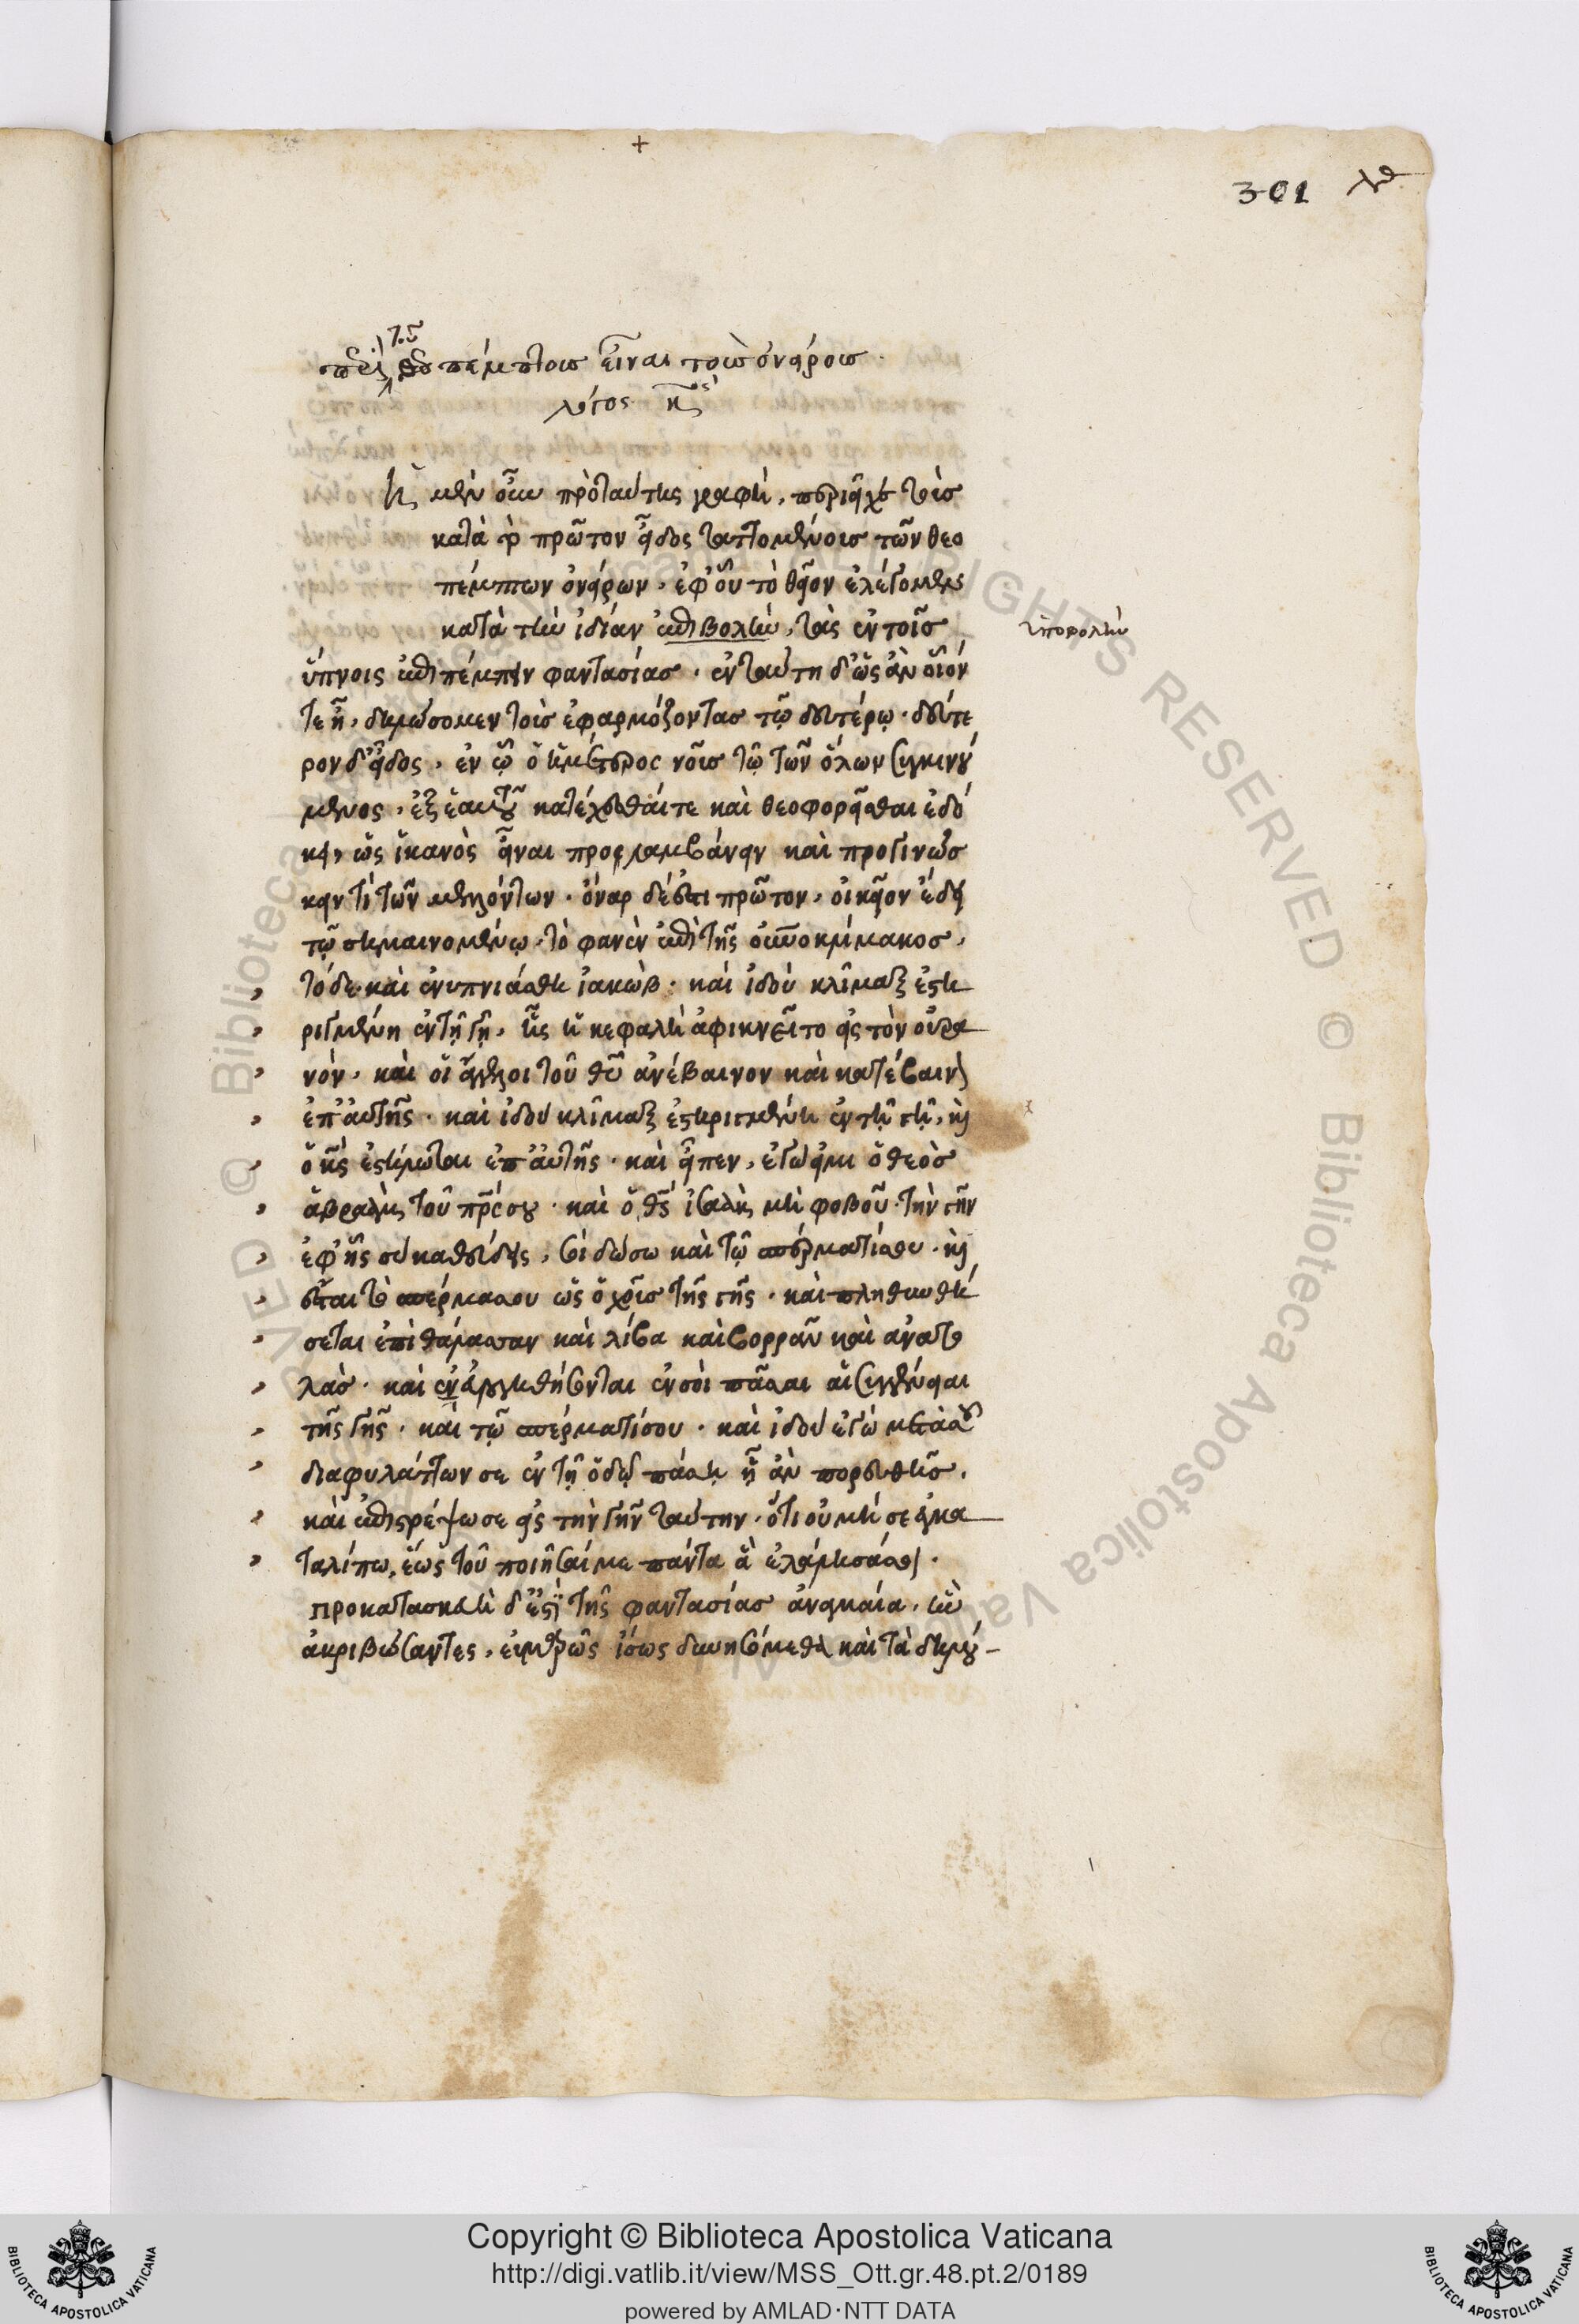 +
301 λθ
περὶ τοῦ θεοπέμπτους εἶναι τοὺς ὀνείρους.
λόγος κϛ
ἡ μὲν οὖν πρὸ ταύτης γραφὴ, περιεῖχε τοὺς
κατὰ τὸ πρῶτον εἶδος ταττομένους τῶν θεο
πέμπτων ὀνείρων, ἐφ' οὗ τὸ θεῖον ἐλέγομεν
κατὰ τὴν ἰδίαν ἐπιβολὴν, τὰς ἐν τοῖς
ὑποβολὴν
ὕπνοις ἐπιπέμπειν φαντασίας. ἐν ταύτη δ' ὡς ἂν οἷόν
τε ἦ, δηλώσομεν τοὺς ἐφαρμόζοντας τῷ δευτέρῳ. δεύτε
ρον δ' εἶδος, ἐν ᾧ ὁ ἡμέτερος νοῦς τῷ τῶν ὅλων συγκινού
μενος, ἐξ ἑαυτοῦ κατέχεσθαί τε καὶ θεοφορεῖσθαι ἐδό
κει, ὡς ἱκανὸς εἶναι προλαμβάνειν καὶ προγινώσ
κειν τὶ τῶν μελλόντων. ὄναρ δέ ἐστι πρῶτον, οἰκεῖον εἴδει
τῷ σημαινομένῳ, τὸ φανὲν ἐπὶ τῆς οὐνοκλίμακος,
τόδε. καὶ ἐνυπνιάσθη ἰακὼβ. καὶ ἰδοὺ κλῖμαξ ἐστη
ριγμένη ἐν τῇ γῇ, ἧς ἡ κεφαλὴ ἀφικνεῖτο εἰς τὸν οὐρα
νόν. καὶ οἱ ἄγγελοι τοῦ θυ ἀνέβαινον καὶ κατέβαινον
ἐπ' αὐτῆς. καὶ ἰδοὺ κλῖμαξ ἐστηριγμένη ἐν τῇ γῇ, καὶ
ὁ κς ἐστήρικται ἐπ' αὐτῆς. καὶ εἶπεν, ἐγώ εἰμι ὁ θεὸς
ἁβραὰμ τοῦ πρς σου. καὶ ὁ θς ἰσαὰκ μὴ φοβοῦ. τὴν γῆν
ἐφ' ἧς σὺ καθεύδεις, σοὶ δώσω καὶ τῷ σπέρματί σου. καὶ
ἔσται τὸ σπέρμα σου ὡς ὁ χοῦς τῆς γῆς. καὶ πληθυνθή
σεται ἐπὶ θάλασσαν καὶ λίβα καὶ βορρᾶν καὶ ἀνατο
λὰς. καὶ ἐνευλογηθήσονται ἐν σοὶ πᾶσαι αἱ συγγένειαι
τῆς γῆς. καὶ τῷ σπέρματί σου. καὶ ἰδοὺ ἐγὼ μετὰ σοῦ
διαφυλάττων σε ἐν τῇ ὁδῷ πάσῃ ᾗ ἂν πορευθῇς.
καὶ ἐπιστρέψω σε εἰς τὴν γῆν ταύτην. ὅτι οὐ μή σε ἐγκα
ταλίπω, ἕως τοῦ ποιῆσαί με πάντα ἃ ἐλάλησά σοι.
προκατασκευὴ δ' ἐστὶ τῆς φαντασίας ἀναγκαία. ἣν
ἀκριβώσαντες, εὐμαρῶς ἴσως δυνησόμεθα καὶ τὰ δηλού-
Copyright © Biblioteca Apostolica Vaticana
http://digi.vatlib.it/view/MSS_Ott.gr.48.pt.2/0189
powered by AMLAD·NTT DATA